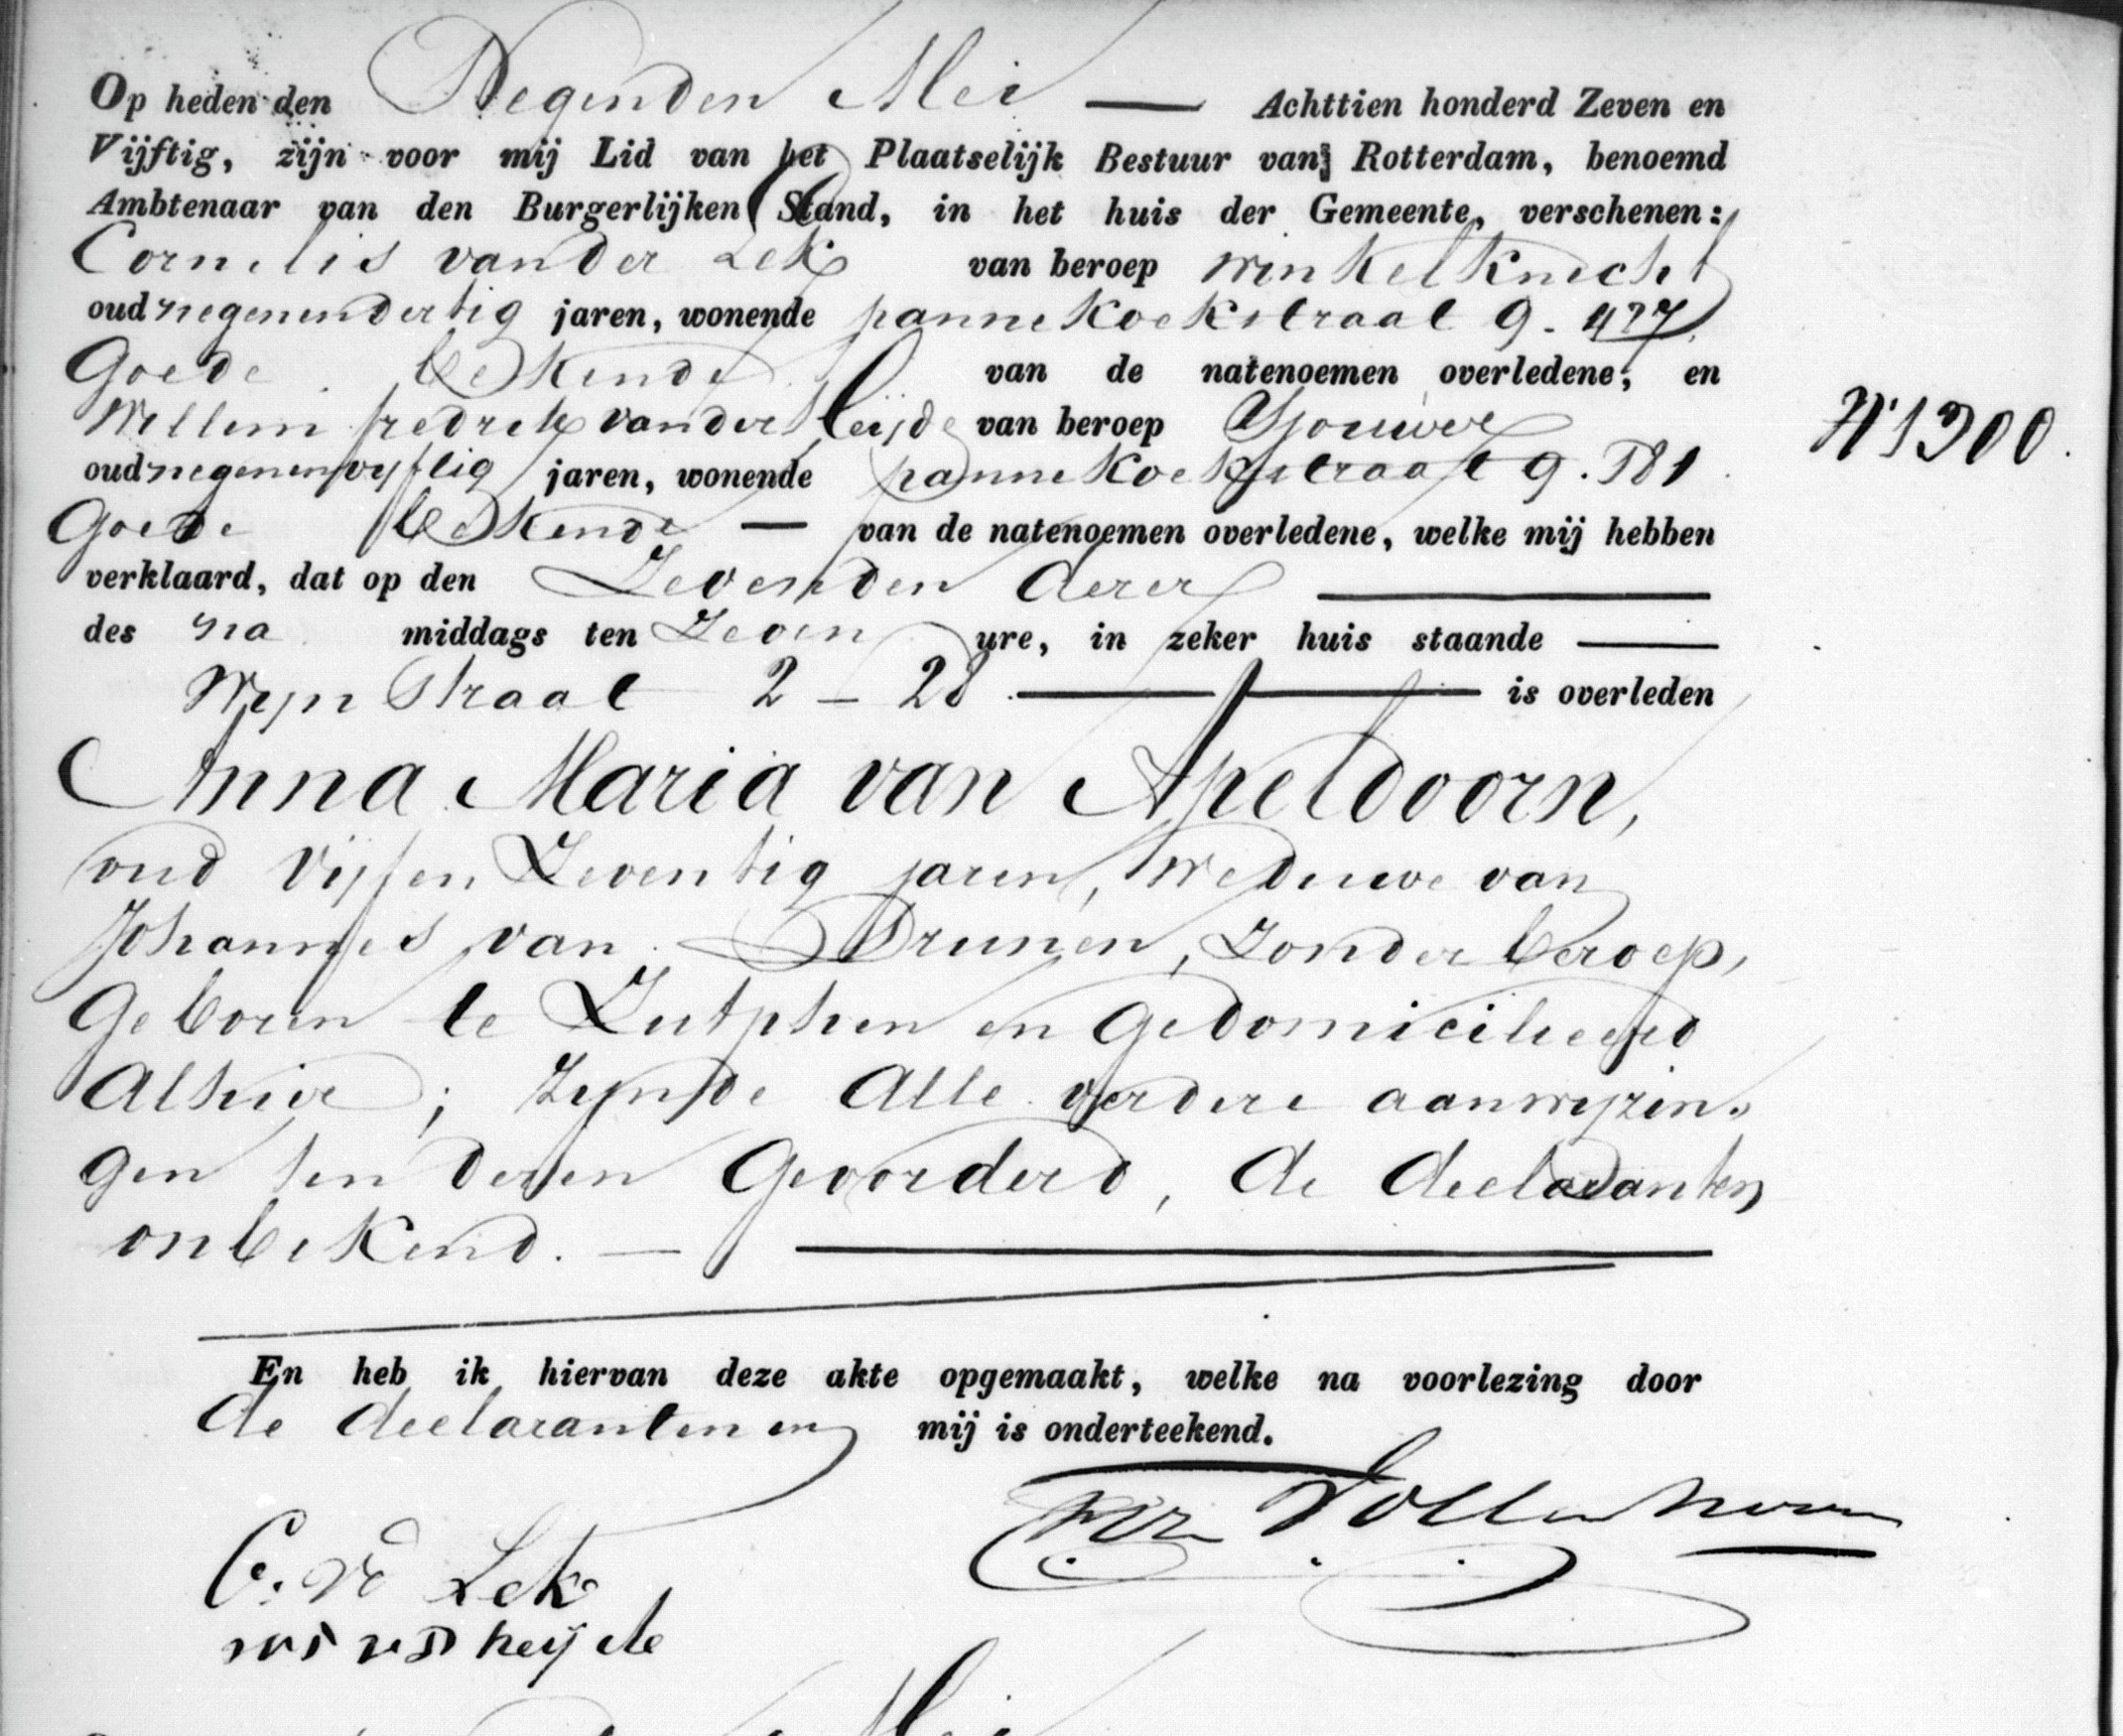 Op heden den Negenden Mei — Achttien honderd Zeven en
Vijftig, zijn voor mij Lid van het Plaatselijk Bestuur van Rotterdam, benoemd
Ambtenaar van den Burgerlijken Stand, in het huis der Gemeente, verschenen:
Cornelis van der Lek van beroep winkelknecht
oud negenendertig jaren, wonende pannekoekstraat 9. 477
Goede bekende van de natenoemen overledene, en
Willem fredrik van der heijde van beroep Sjouwer
oud negenenvyftig jaren, wonende pannekoekstraat 9. 581
Goede bekende — van de natenoemen overledene, welke mij hebben
verklaard, dat op den Zevenden dezer
des na middags ten Zeven ure, in zeker huis staande
Wynstraat 2 - 28 is overleden
Anna Maria van Apeldoorn,
oud vijfen Zeventig jaren, Weduwe van
Johannes van Drunen, Zonder beroep,
Geboren te Zutphen en Gedomicilieerd
Alhier; zynde Alle verdere aanwyzin-
gen ten dezen Gevorderd, de declaranten
onbekend. —
N° 1300.
En heb ik hiervan deze akte opgemaakt, welke na voorlezing door
de declaranten en mij is onderteekend.
C. vd Lek
heijde
Mei